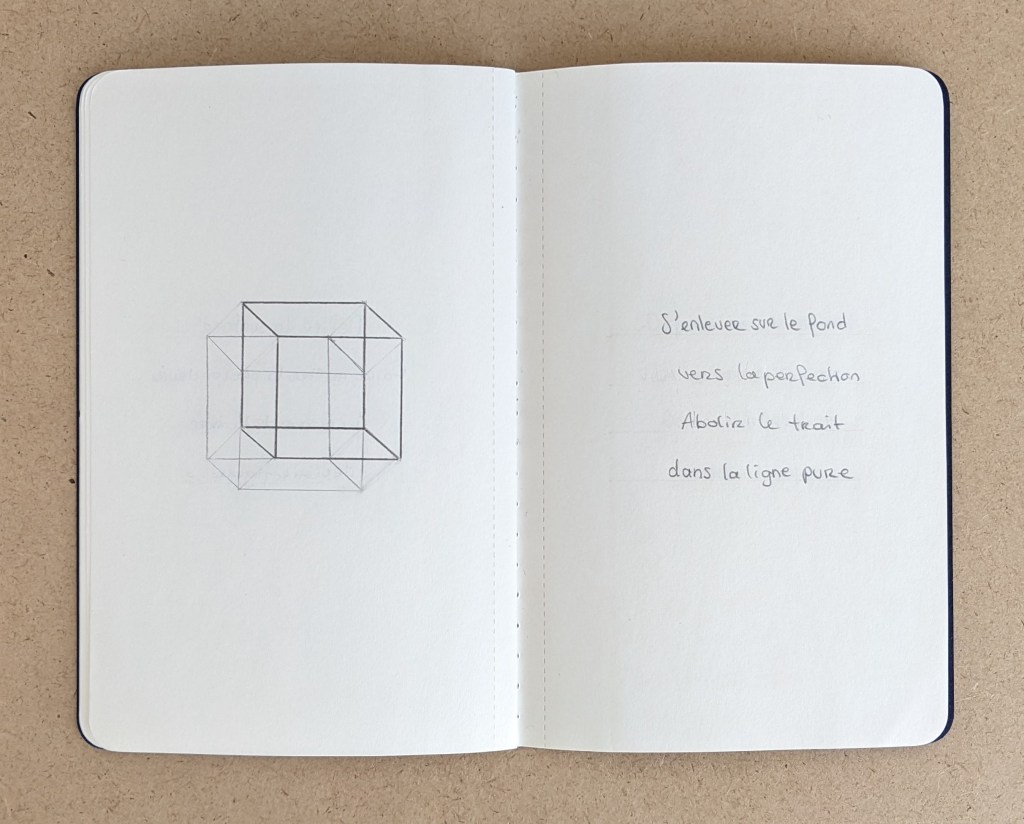 S'enlever sur le fond
vers la perfection
Abolir le trait
dans la ligne pure